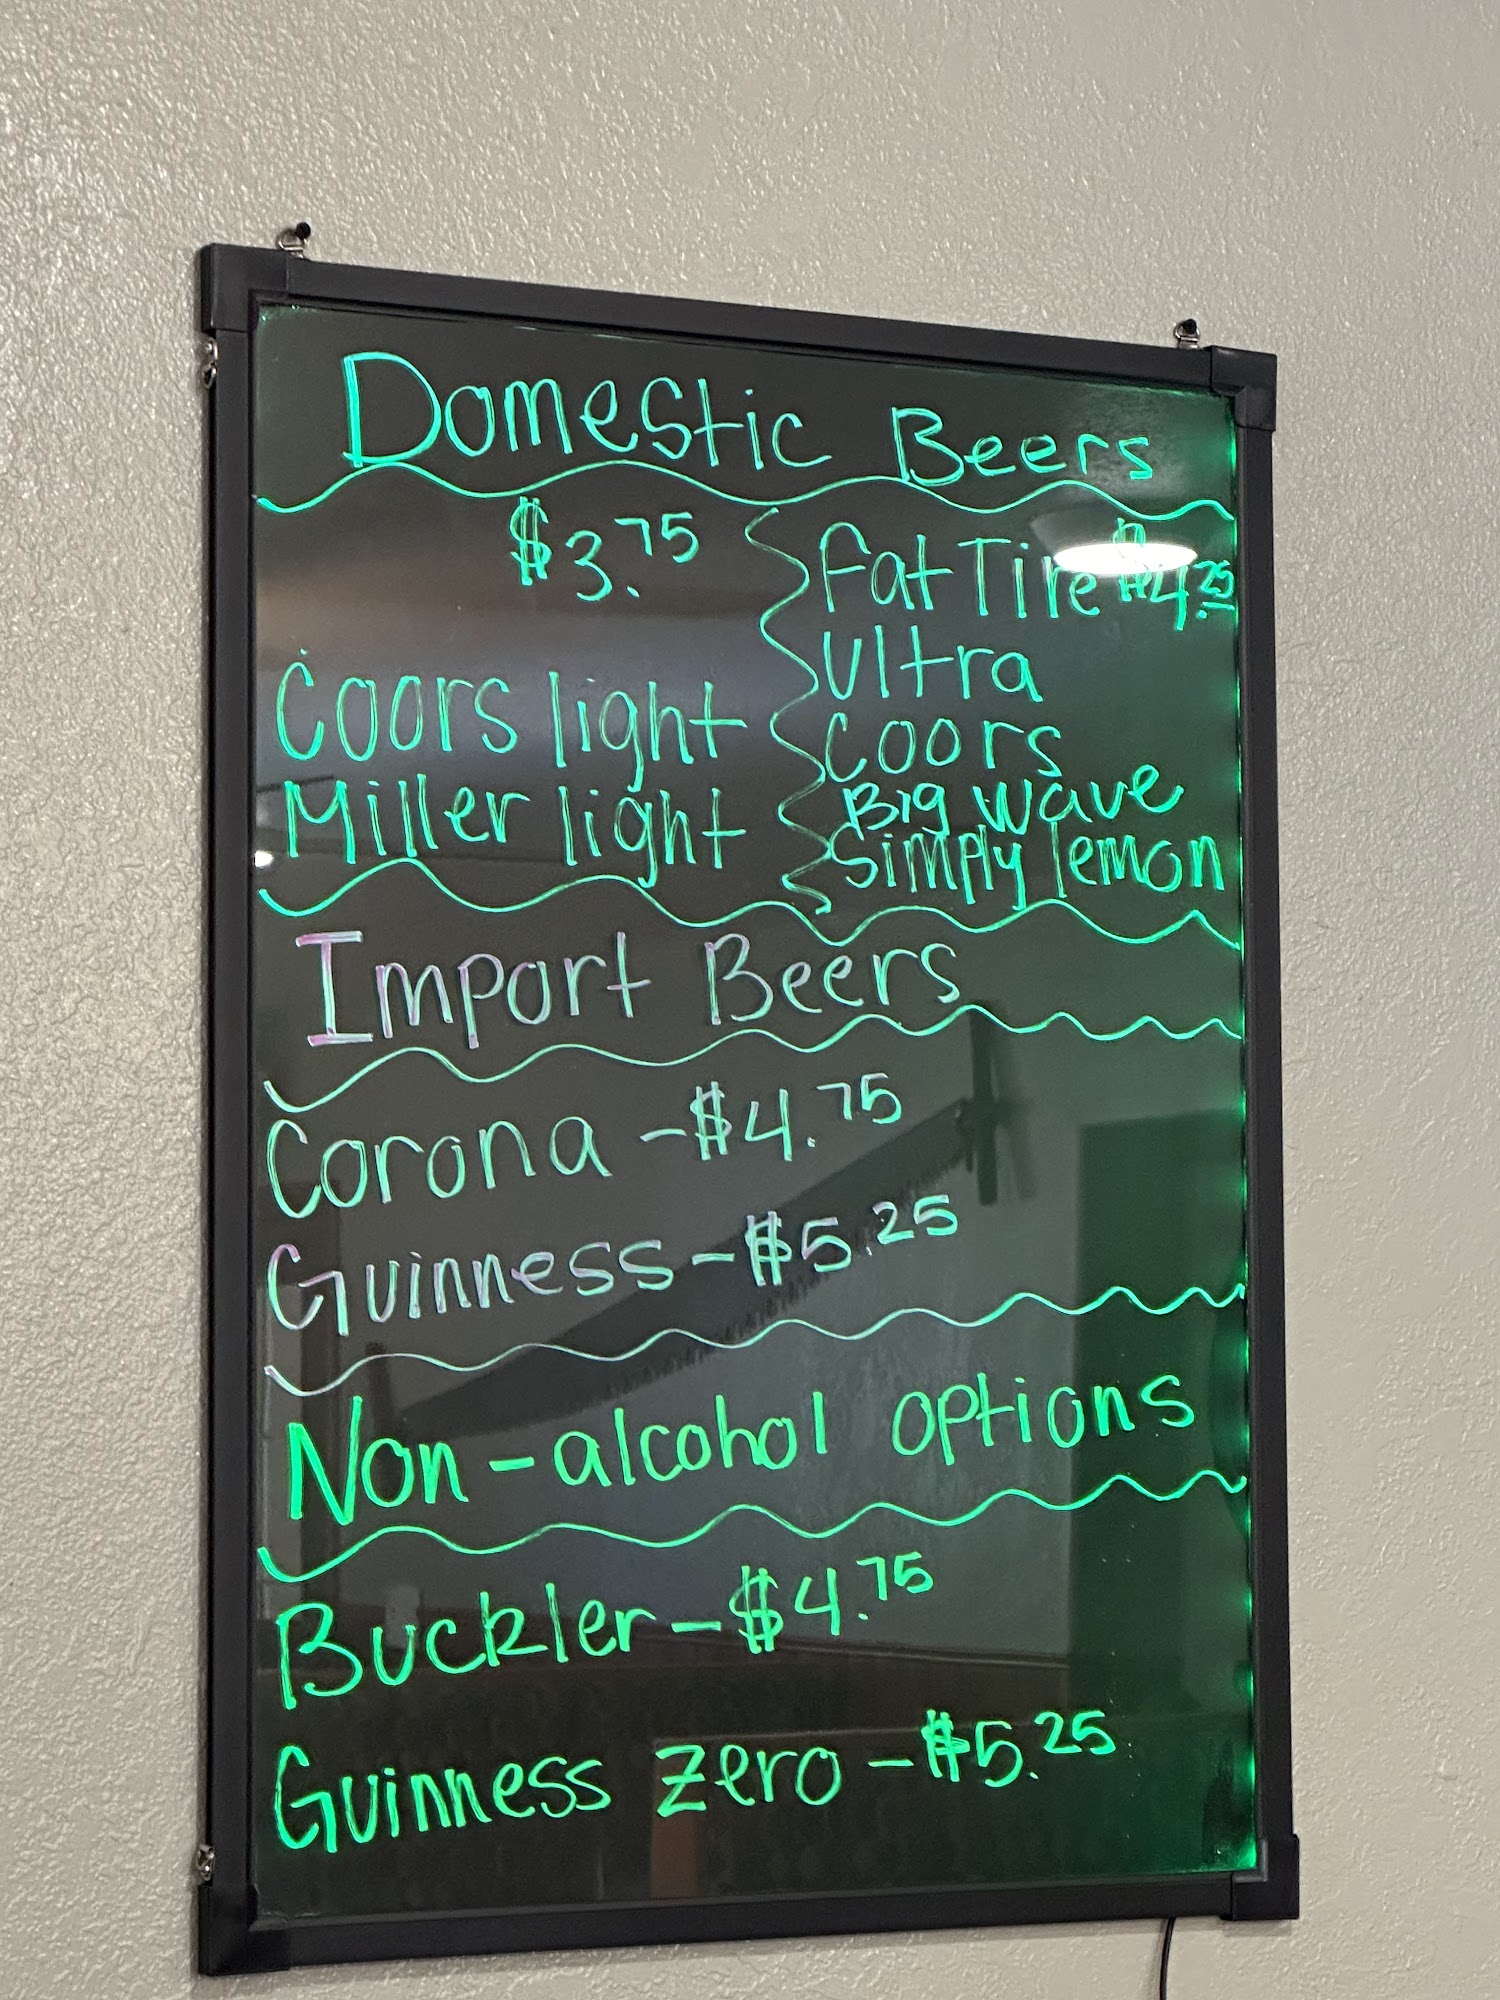 Domestic Beers
$3.75
Coors light
Miller light
Fat Tire $4.25
Ultra
Coors
Big wave
Simply lemon
Import Beers
Corona - $4.75
Guinness - $5.25
Non-alcohol options
Buckler - $4.75
Guinness Zero - $5.25